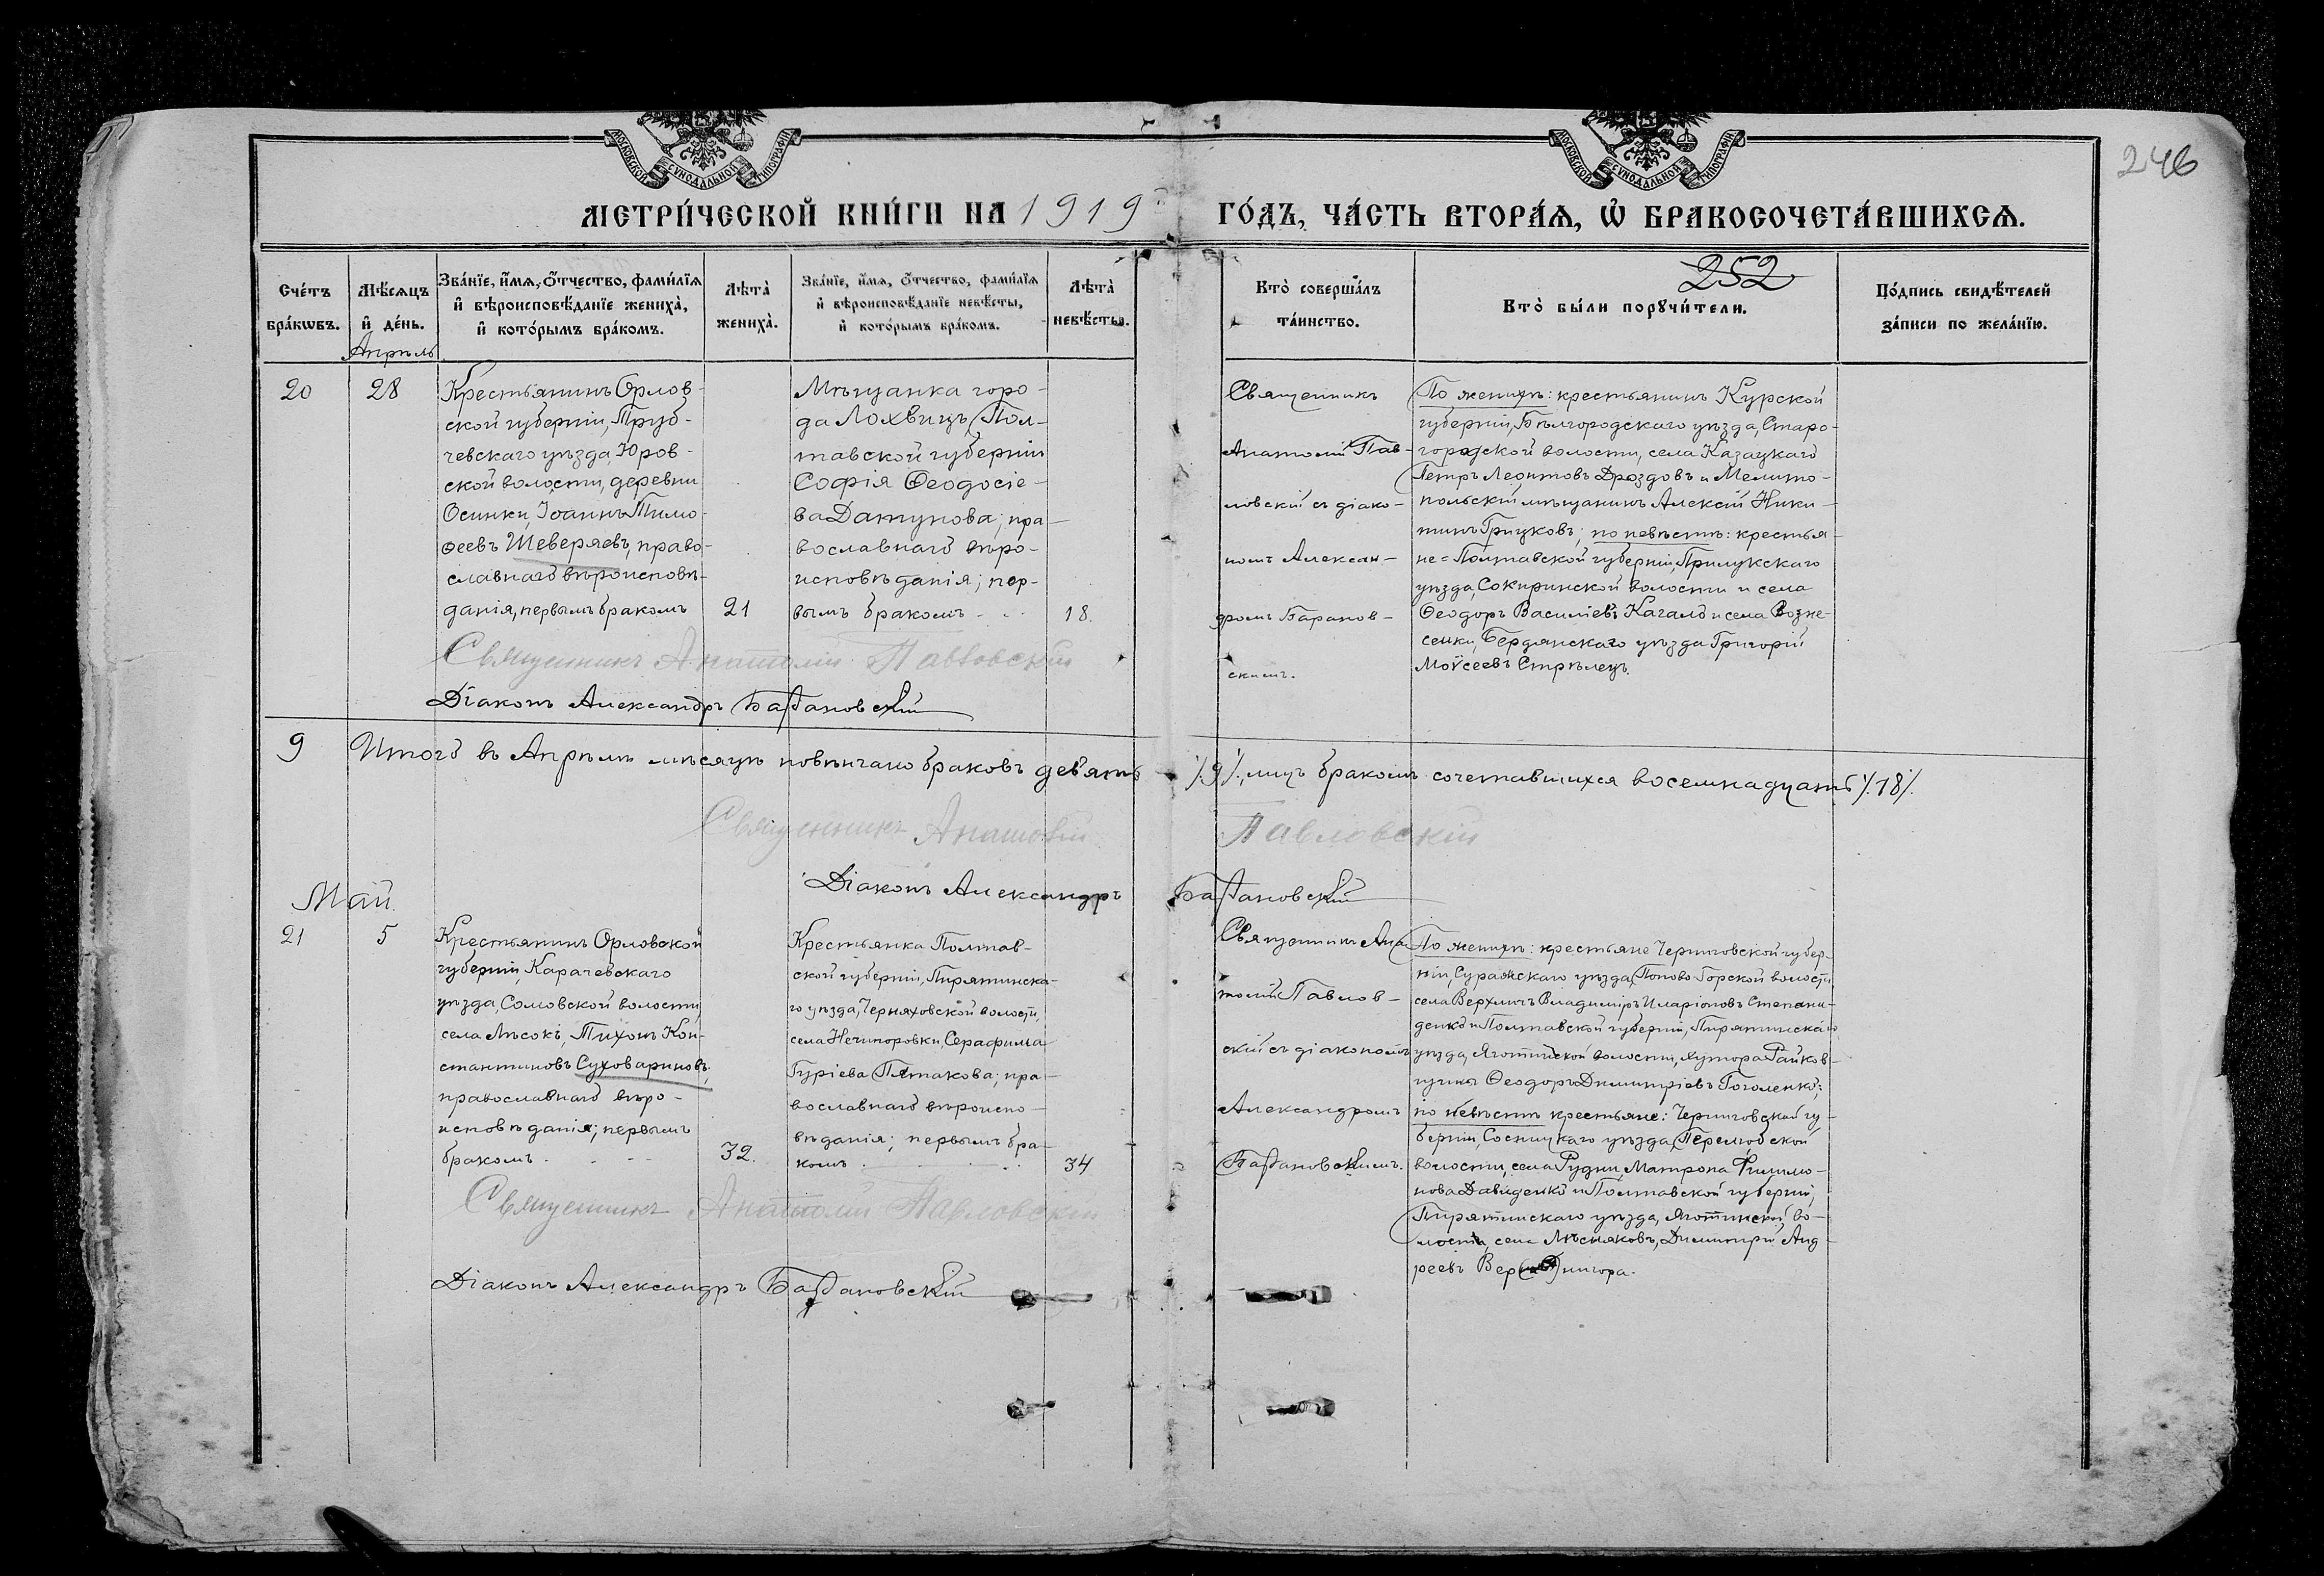 МОСКОВСКОЙ СѴНОДАЛЬНОЙ ТИПОГРАФІИ
МОСКОВСКОЙ СѴНОДАЛЬНОЙ ТИПОГРАФІИ
246
МЕТРИ́ЧЕСКОЙ КНИ́ГИ НА 1919
ГО́ДЪ, ЧА́СТЬ ВТОРА́Ѧ, Ѽ БРАКОСОЧЕТА́ВШИХСѦ.
252
Сче́тъ
бра́кѡвъ.
Мѣ́сѧцъ
и҆ де́нь.
Апрѣль
Зва́нїе, и҆́мѧ, ѻ҆́тчество, фами́лїѧ
и҆ вѣроисповѣ́данїе жениха̀,
и҆ кото́рымъ бра́комъ.
Лѣта̀
жениха̀.
Зва́нїе, и҆́мѧ, ѻ҆́тчество, фами́лїѧ
и҆ вѣроисповѣ́данїе невѣ́сты,
и҆ кото́рымъ бра́комъ.
Лѣта̀
невѣ́сты.
Кто̀ соверша́лъ
та́инство.
Кто̀ бы́ли порꙋчи́тели.
По́дпись свидѣ́телей
за́писи по жела́нїю.
20
28
Крестьянинъ Орлов-
ской губерніи, Труб-
чевскаго уѣзда, Юров-
ской волости, деревни
Осинки, Іоаннъ Тимо-
ѳеевъ Шеверяевъ, право-
славнаго вѣроисповѣ-
данія, первымъ бракомъ
21
Мѣщанка горо-
да Лохвицъ, Пол-
тавской губерніи
Софія Ѳеодосіе-
ва Датунова; пра-
вославнаго вѣро-
исповѣданія; пер-
вымъ бракомъ
18.
Священникъ
Анатолій Пав-
ловскій съ діако-
номъ Алексан-
дромъ Баранов-
скимъ.
По женихѣ: крестьянинъ Курской
губерніи, Бѣлгородскаго уѣзда, Старо-
городской волости, села Казацкаго
Петръ Леонтовъ Дроздовъ и Мелито-
польскій мѣщанинъ Алексій Ники-
тинъ Грицковъ; по невѣстѣ: крестья-
не=Полтавской губерніи, Прилукскаго
уѣзда, Сокиринской волости и села
Ѳеодоръ Василіевъ Кагало и села Возне-
сенки, Бердянскаго уѣзда Григорій
Моѵсеевъ Стрѣлецъ.
Священникъ Анатолій Павловскій
Діаконъ Александръ Барановскій
9 Итого въ Апрѣлѣ мѣсяцѣ повѣнчано браковъ девять /.9/., лицъ бракомъ сочетавшихся восемнадцать /.18/.
Священникъ Анатолій Павловскій
Діаконъ Александръ Барановскій
Май.
21
5
Крестьянинъ Орловской
губерніи, Карачевскаго
уѣзда, Соловской волости,
села Лѣсокі, Тихонъ Кон-
стантиновъ Сухавариновъ;
православнаго вѣро-
исповѣданія; первымъ
бракомъ
32.
Крестьянка Полтав-
ской губерніи, Пирятинска-
го уѣзда, Черняховской волости,
села Нечипоровки, Серафима
Гуріева Пятакова; пра-
вославнаго вѣроиспо-
вѣданія; первымъ бра-
комъ
34
Священникъ Ана-
толій Павлов-
скій съ діакономъ
Александромъ
Барановскимъ.
По женихѣ: крестьяне Черниговской губер-
ніи, Суражскаго уѣзда, Попово-Горской волости
села Верхличъ Владиміръ Иларіоновъ Степани-
денко и Полтавской губерніи, Пирятинскаго
уѣзда, Яготинской волости, хутора Райков-
щины Ѳеодоръ Димитріевъ Гоголенко;
по невѣстѣ крестьяне: Черниговской гу-
берніи, Сосницкаго уѣзда, Перелюбской
волости, села Рудни, Матрона Филимо-
нова Давиденко и Полтавской губерніи,
Пирятинскаго уѣзда, Яготинской во-
лости, села Лѣсняковъ, Димитрій Анд-
реевъ
Священникъ Анатолій Павловскій
Діаконъ Александръ Барановскій